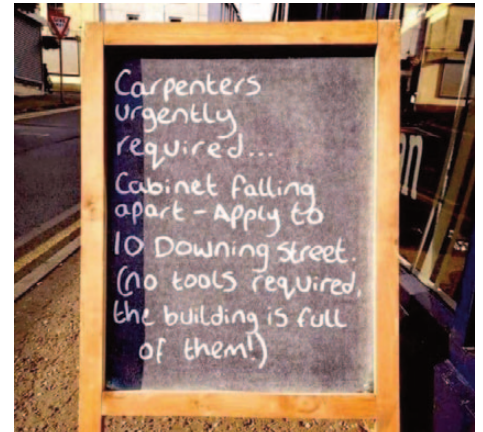 Carpenters
urgently
required...
Cabinet falling
apart - Apply to
10 Downing Street.
(no tools required,
the building is full
of them!)